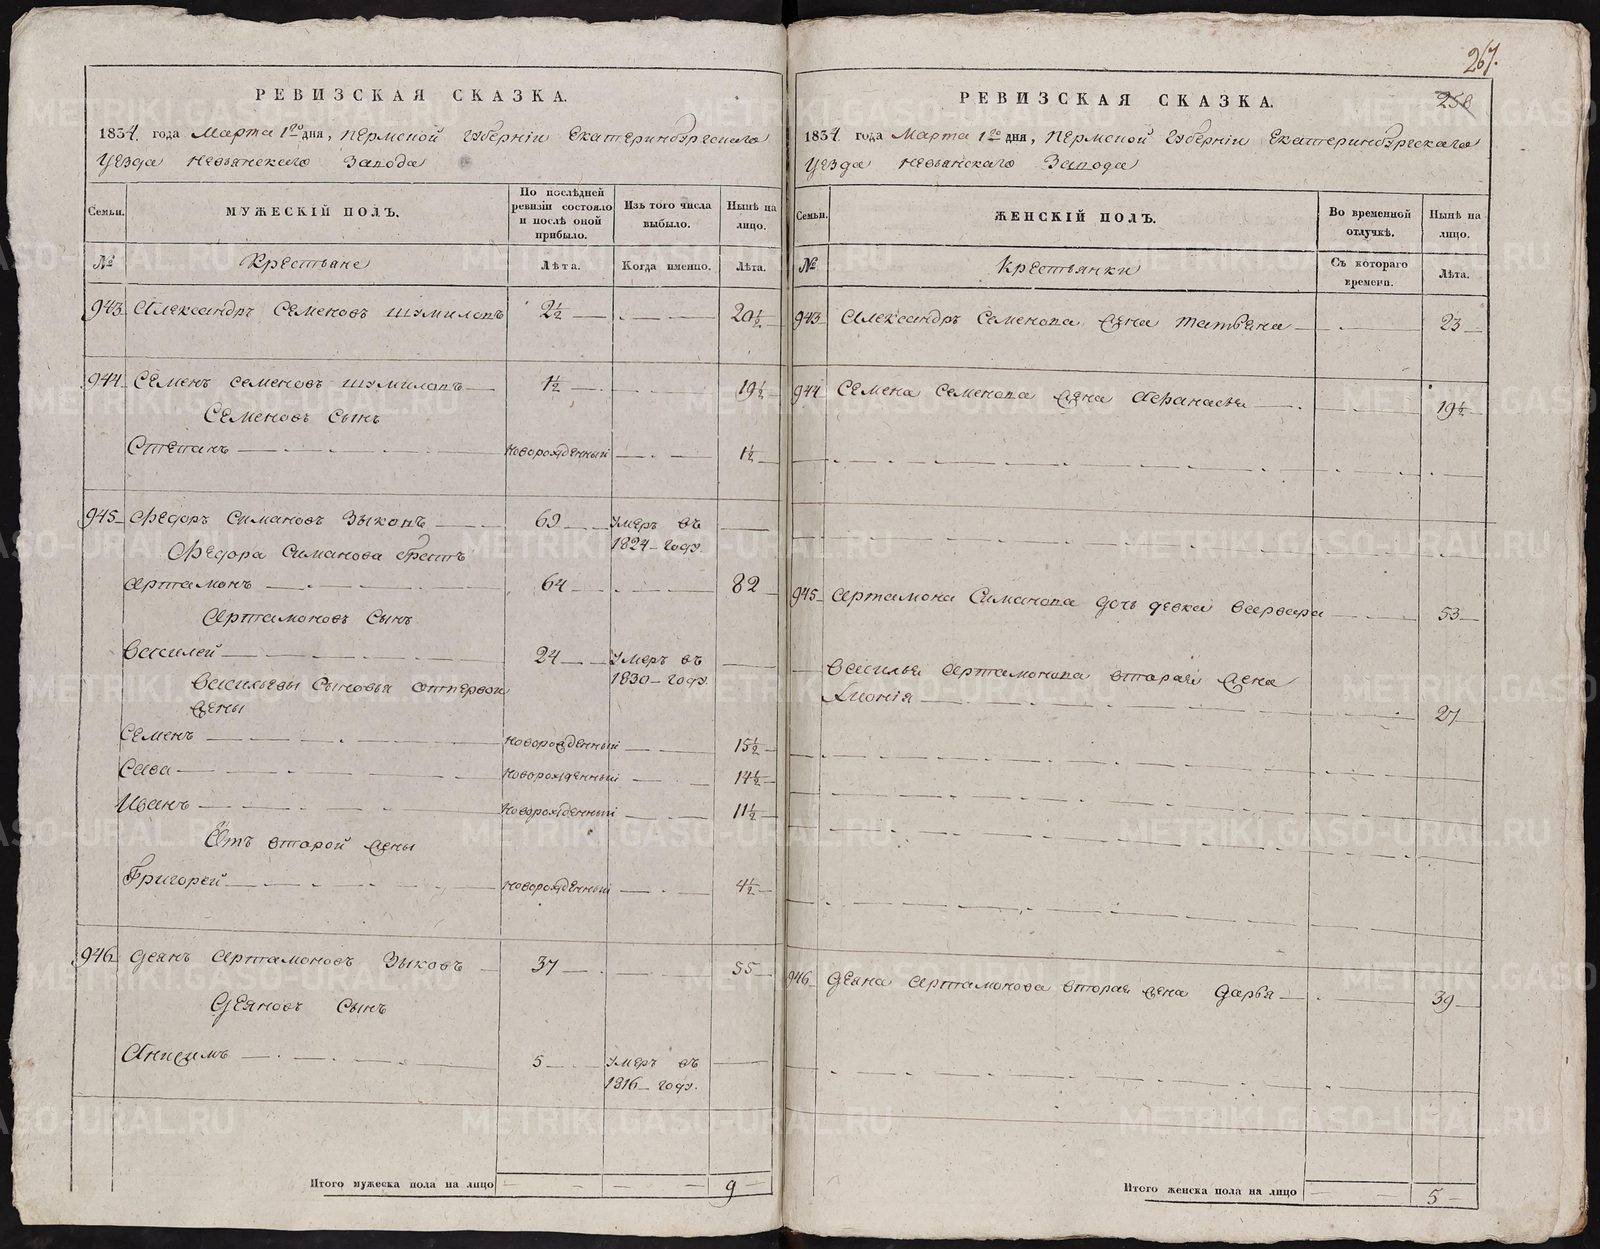 РЕВИЗСКАЯ СКАЗКА.
1834. года Марта 1го дня, Пермской Губерніи Екатеринбургскаго
Уезда Невьянскаго Завода
Семьи.
МУЖЕСКІЙ ПОЛЪ.
По послѣдней ревизіи состояло и послѣ оной прибыло.
Изъ того числа выбыло.
Нынѣ на лицо.
№
Крестьяне
Лѣта.
Когда именно.
Лѣта.
943 Александръ Семеновъ Шумиловъ 2½ 20½
944 Семенъ Семеновъ Шумиловъ 1½ 19½
Семеновъ Сынъ
Степанъ новорожденный 1½
945 Федоръ Симановъ Зыковъ 69 умеръ въ
1824 году.
Федора Симанова братъ
Артамонъ 64 82
Артамоновъ Сынъ
Василей 24 умеръ въ
1830 году.
Васильевы Сыновья отпервой
жены
Семенъ новорожденный 15½
Сава новорожденный 14½
Иванъ новорожденный 11½
Отъ второй жены
Григорей новорожденный 4½
946 Деянъ Артамоновъ Зыковъ 37 55
Деяновъ Сынъ
Анисимъ 5 умеръ въ
1816 году.
Итого мужеска пола на лицо 9
267.
258
РЕВИЗСКАЯ СКАЗКА.
1834 года Марта 1го дня, Пермской Губерніи Екатеринбургскаго
Уезда Невьянскаго Завода
Семьи.
ЖЕНСКІЙ ПОЛЪ.
Во временной отлучкѣ.
Нынѣ на лицо.
№
Крестьянки
Съ котораго времени.
Лѣта.
943 Александра Семенова жена Татьяна 23
944 Семена Семенова жена Афанасья 19½
945 Артамона Симанова дочь девка Варвара 53
Василья Артамонова вторая жена
27
946 Деяна Артамонова вторая жена Дарья 39
Итого женска пола на лицо 5
METRIKI.GASO-URAL.RU